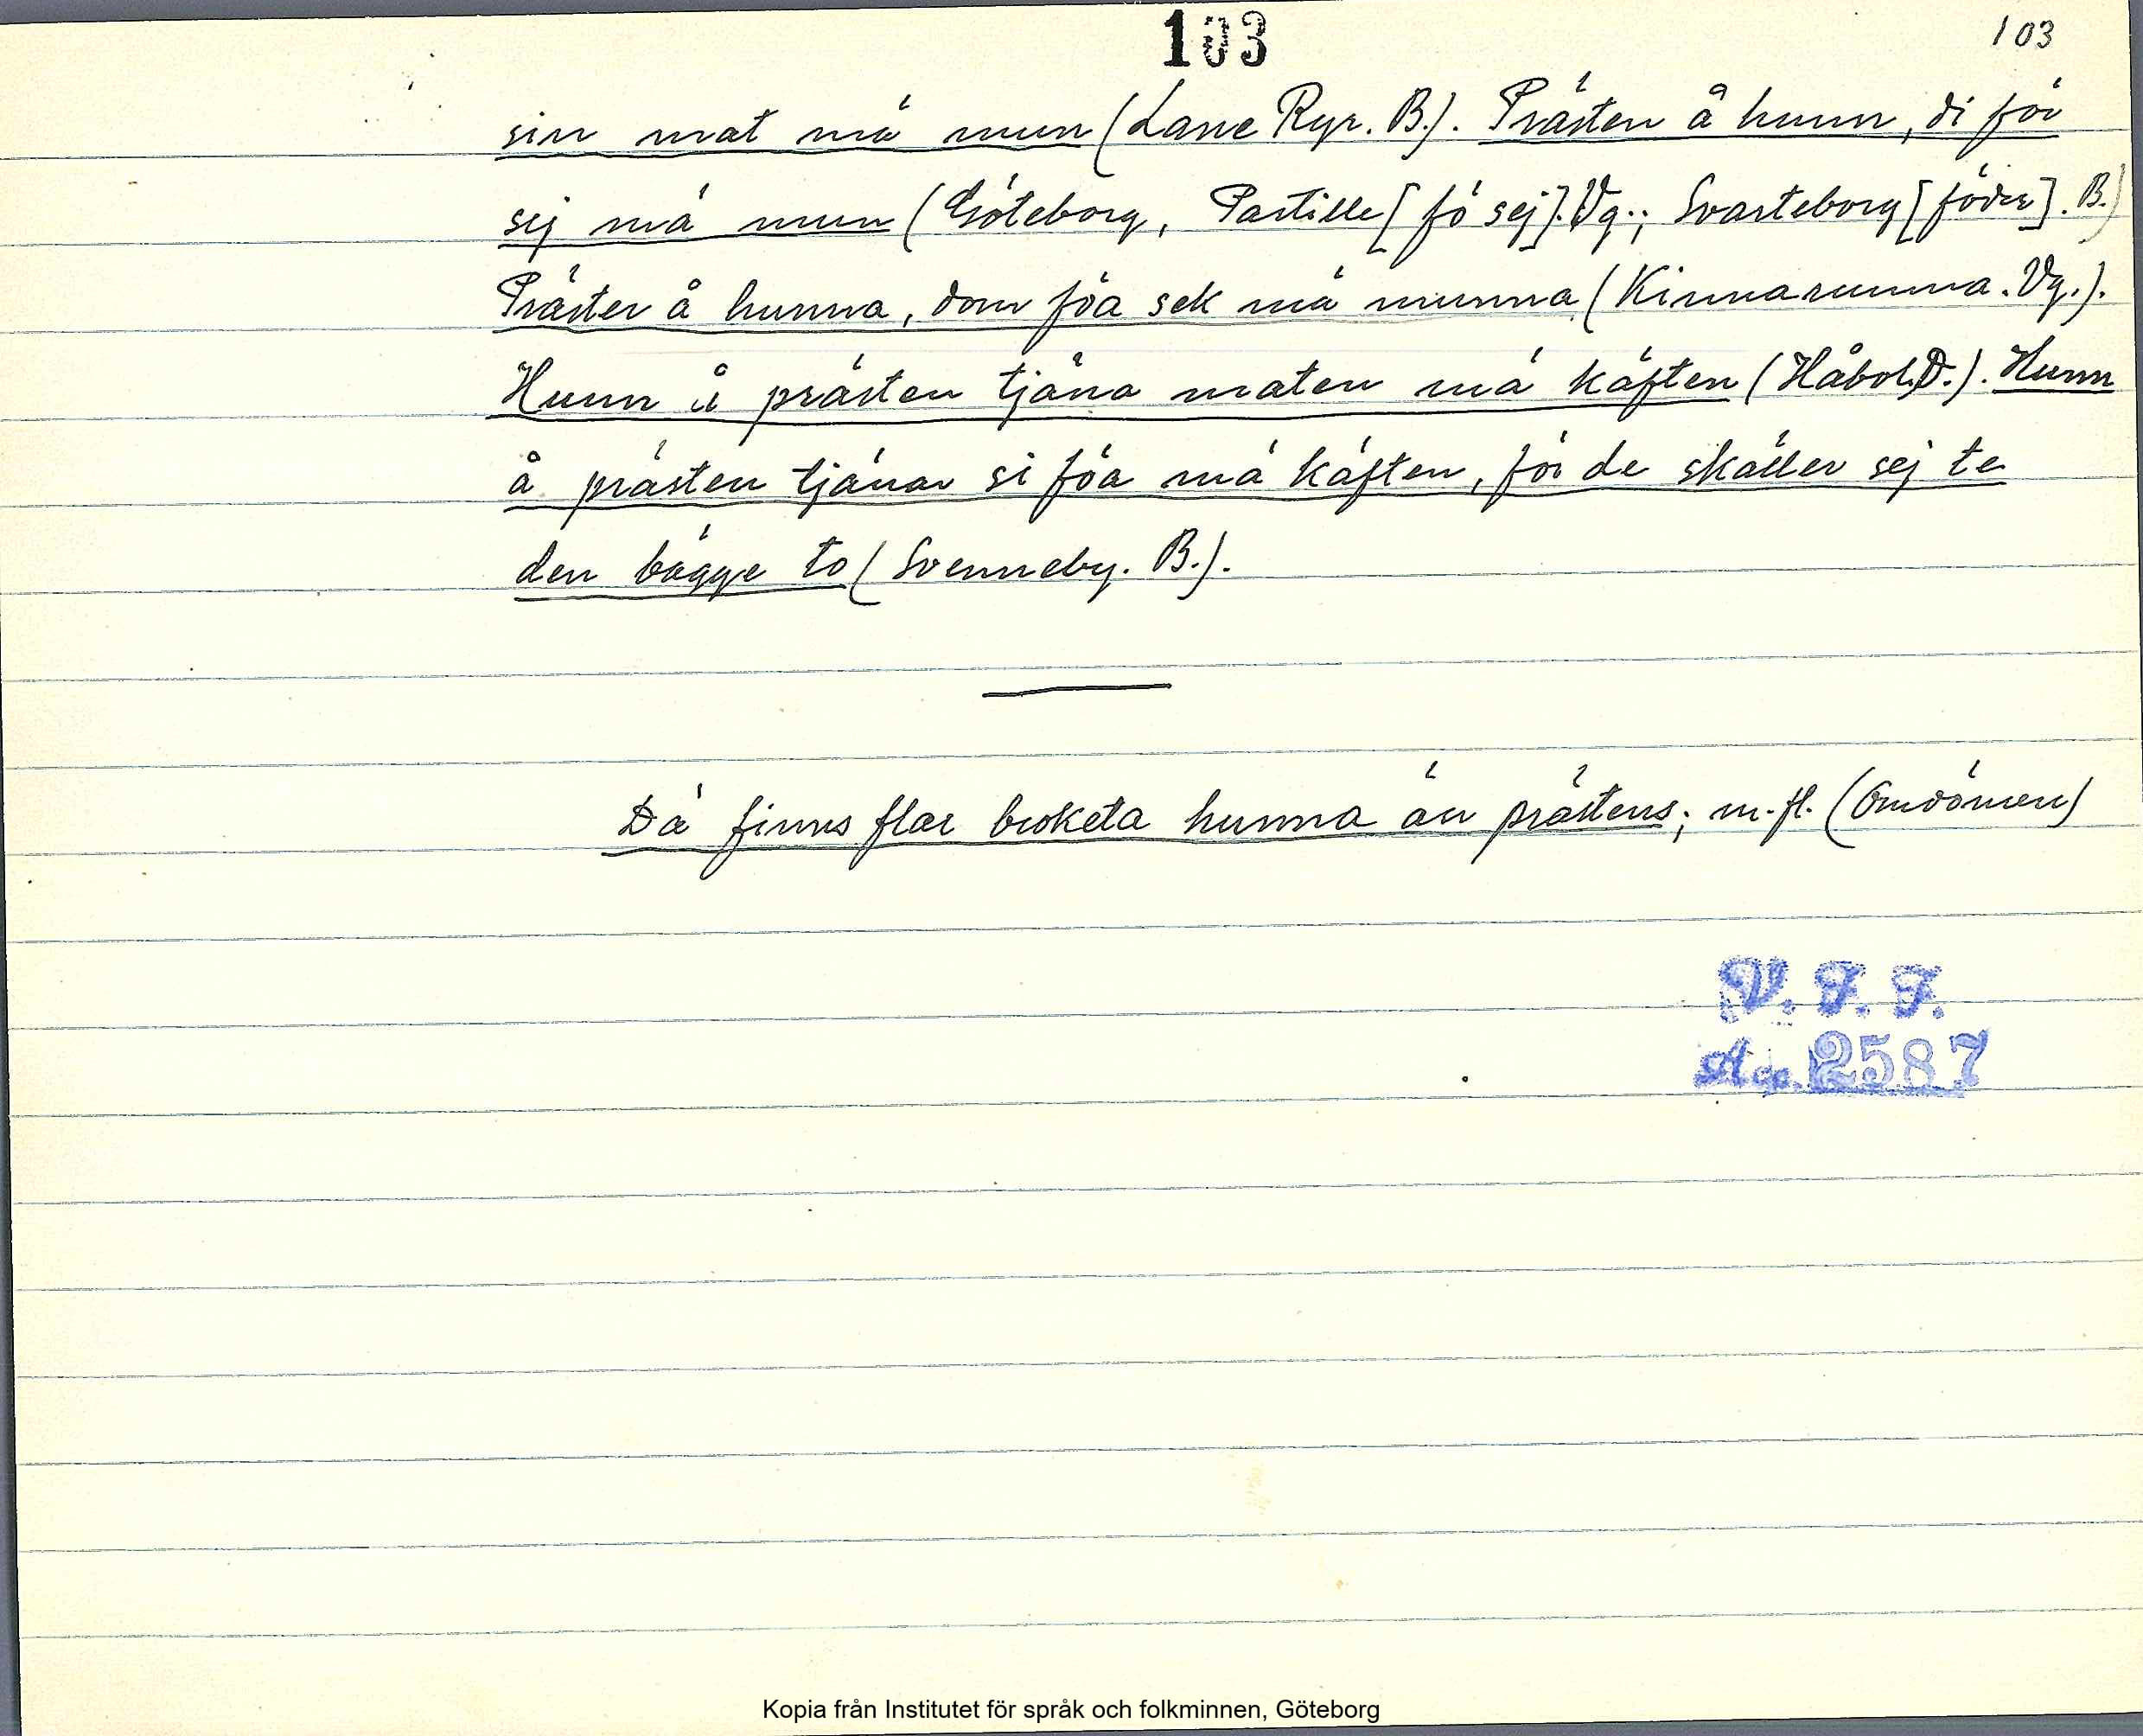 103
103
sin mat mä mun (Lane Ryr. B.). Prästen å hunn, di för
sej mä mun (Göteborg, Partille [fö sej]. Vg.; Svarteborg [föder]. B.)
Präster å hunna, dom föa sek mä munna (Kinnarumma. Vg.).
Hunn å prästen tjäna maten mä käften (Håbol. D.). Hunn
å prästen tjänar si föa mä käften, för de skäller sej te
den bägge to (Svenneby. B.).
Dä finns flar broketa hunna än prästens; m.fl. (Omdömen)
V. F. F.
Acc. 2587
Kopia från Institutet för språk och folkminnen, Göteborg